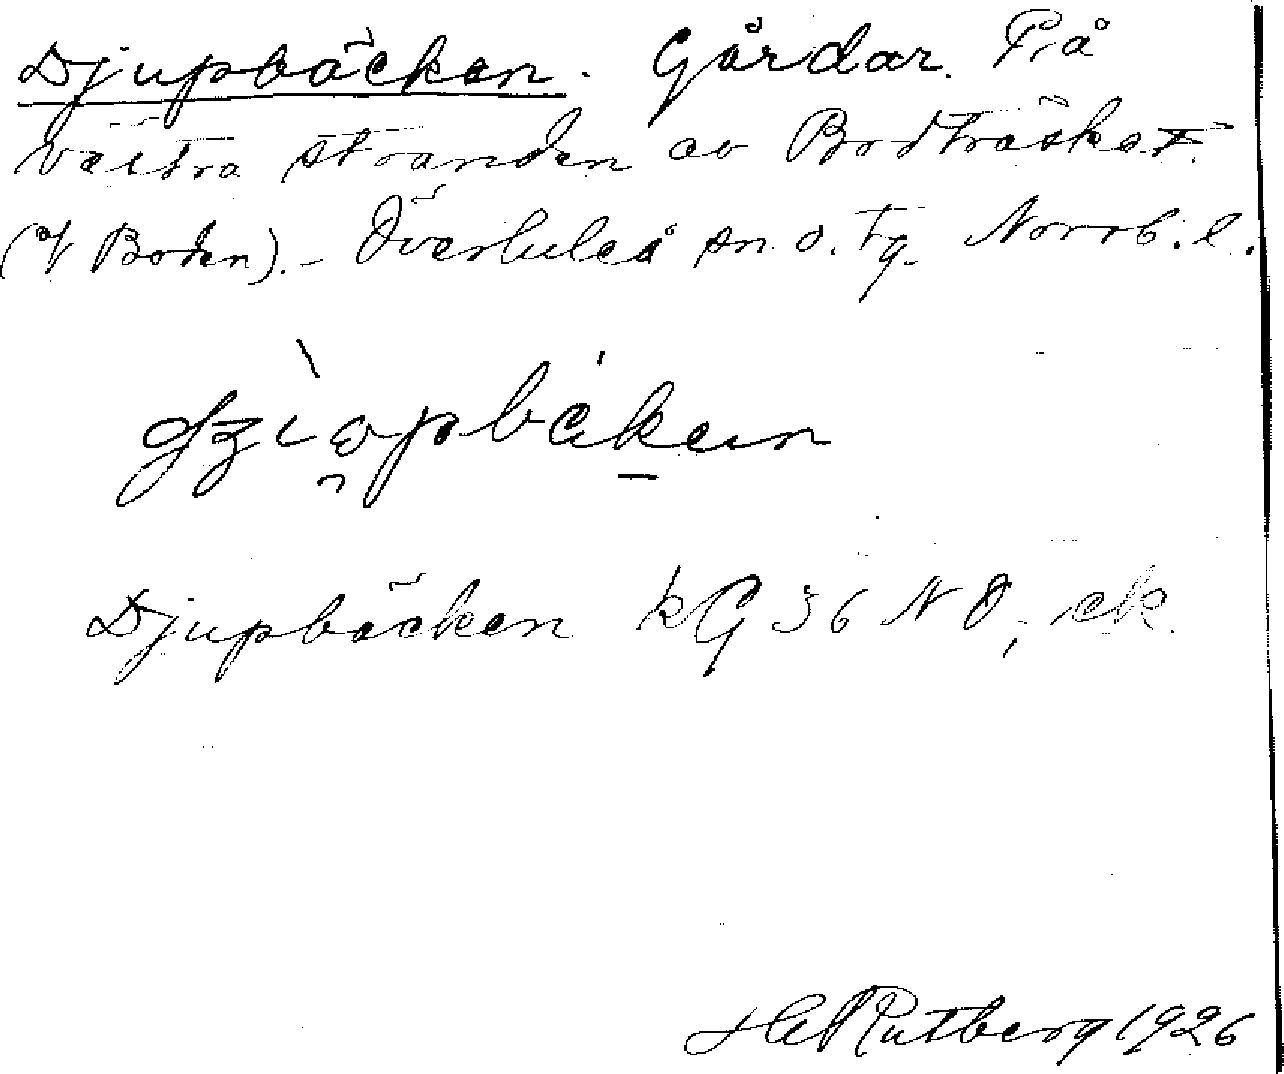 Djupbäcken. Gårdar. På
västra stranden av Bodträsket
(v Boden). - Överluleå sn o. tg. Norrb. l.
Djupbäcken kG 36 NO, ek.
H Rutberg 1926